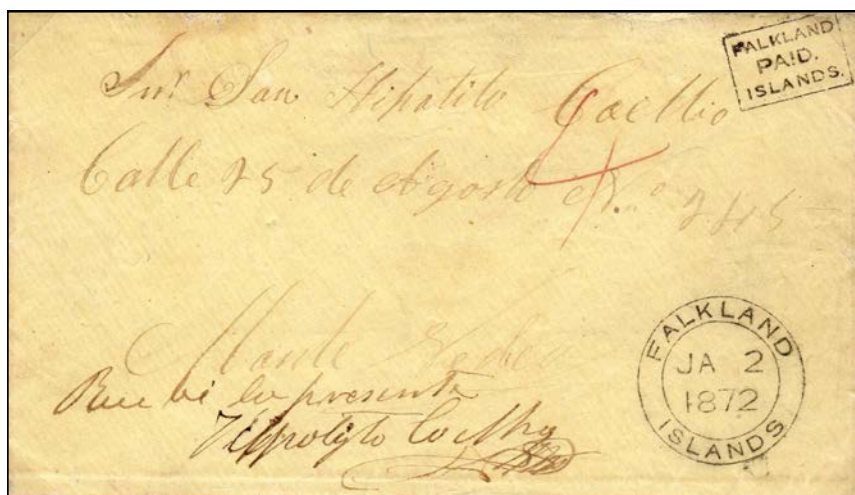 FALKLAND
PAID.
ISLANDS.
Snr San Hipolito Coelho
Calle 25 de Agosto No. 245
4
Monte Video
Recibi la presente
Hippolyto Coelho
FALKLAND
JA 2
1872
ISLANDS